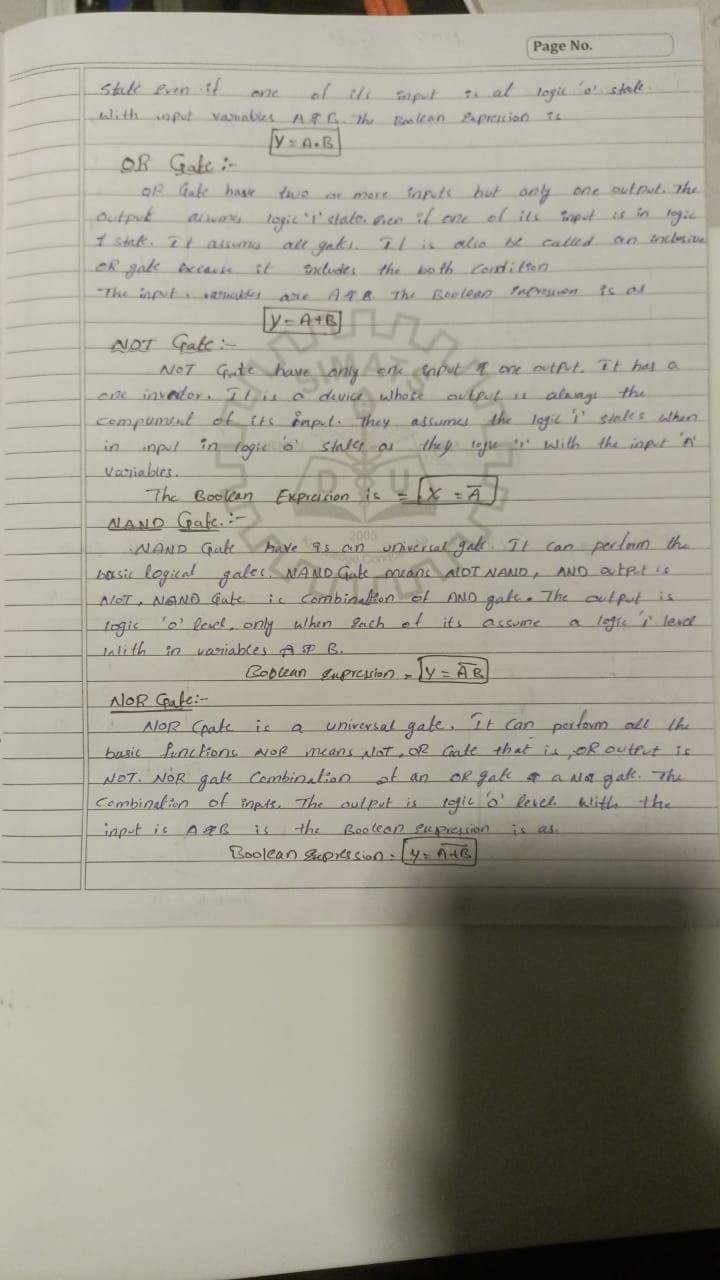 Page No.
state even if one of its input is at logic 'o' state.
With input variables A & B. The Boolean Expression is
Y = A.B
OR Gate :-
OR Gate have two or more inputs but only one output. The
output assumes logic '1' state, even if one of its input is in logic
1 state. It assumes all gates. It is also be called an inclusive
OR gate because it includes the both condition
The input variables are A & B. The Boolean Expression is as
Y = A+B
NOT Gate :-
NOT Gate have only one input & one output. It has a
one invertor. It is a device whose output is always the
compument of its input. They assumes the logic '1' states when
in input in logic 'o' states as they logic '1' with the input 'A'
variables.
The Boolean Expression is = X = A̅
NAND Gate. :-
NAND Gate have is an universal gate. It can perform the
basic logical gates. NAND Gate means NOT NAND, AND output is
NOT. NAND Gate is Combination of AND gate. The output is
logic 'o' level, only when each of its assume a logic '1' level
With in variables A & B.
Boolean expression = Y = A̅B̅
NOR Gate:-
NOR Gate is a universal gate. It can perform all the
basic functions NOR means Not, OR Gate that is, OR output is
NOT. NOR gate Combination of an OR gate & a Not gate. The
Combination of inputs. The output is logic 'o' level with the
input is A & B is the Boolean expression is as.
Boolean expression = Y = A̅+̅B̅
SIMATS
D U
2005